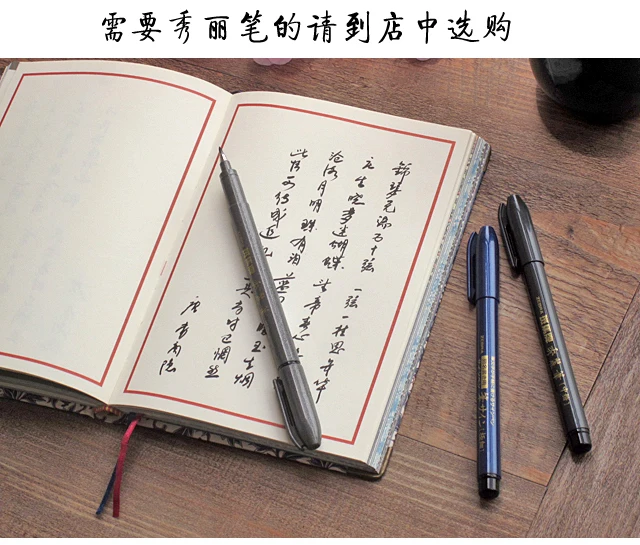 需要秀丽笔的请到店中选购
錦瑟无端五十弦 一弦一柱思年华
庄生晓梦迷蝴蝶 望帝春心
沧海月明珠有泪 蓝 玉生烟
此情可待成追 当时已惘然
唐 李商隐